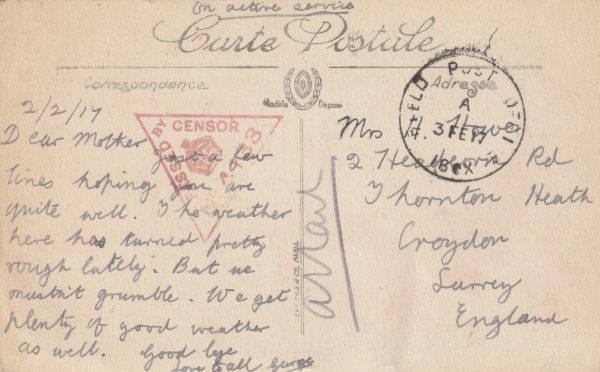 On active service
Carte Postale
Correspondance
Adresse
Modèle Déposé
FIELD POST OFFICE
A
3 FE 17
PASSED BY CENSOR
2/2/17
Dear Mother
Just a few
lines hoping you are
quite well. The weather
here has turned pretty
rough lately. But we
mustn't grumble. We get
plenty of good weather
as well. Good bye
Love to all George
Mrs
2 Rd
Thornton Heath
Croydon
Surrey
England